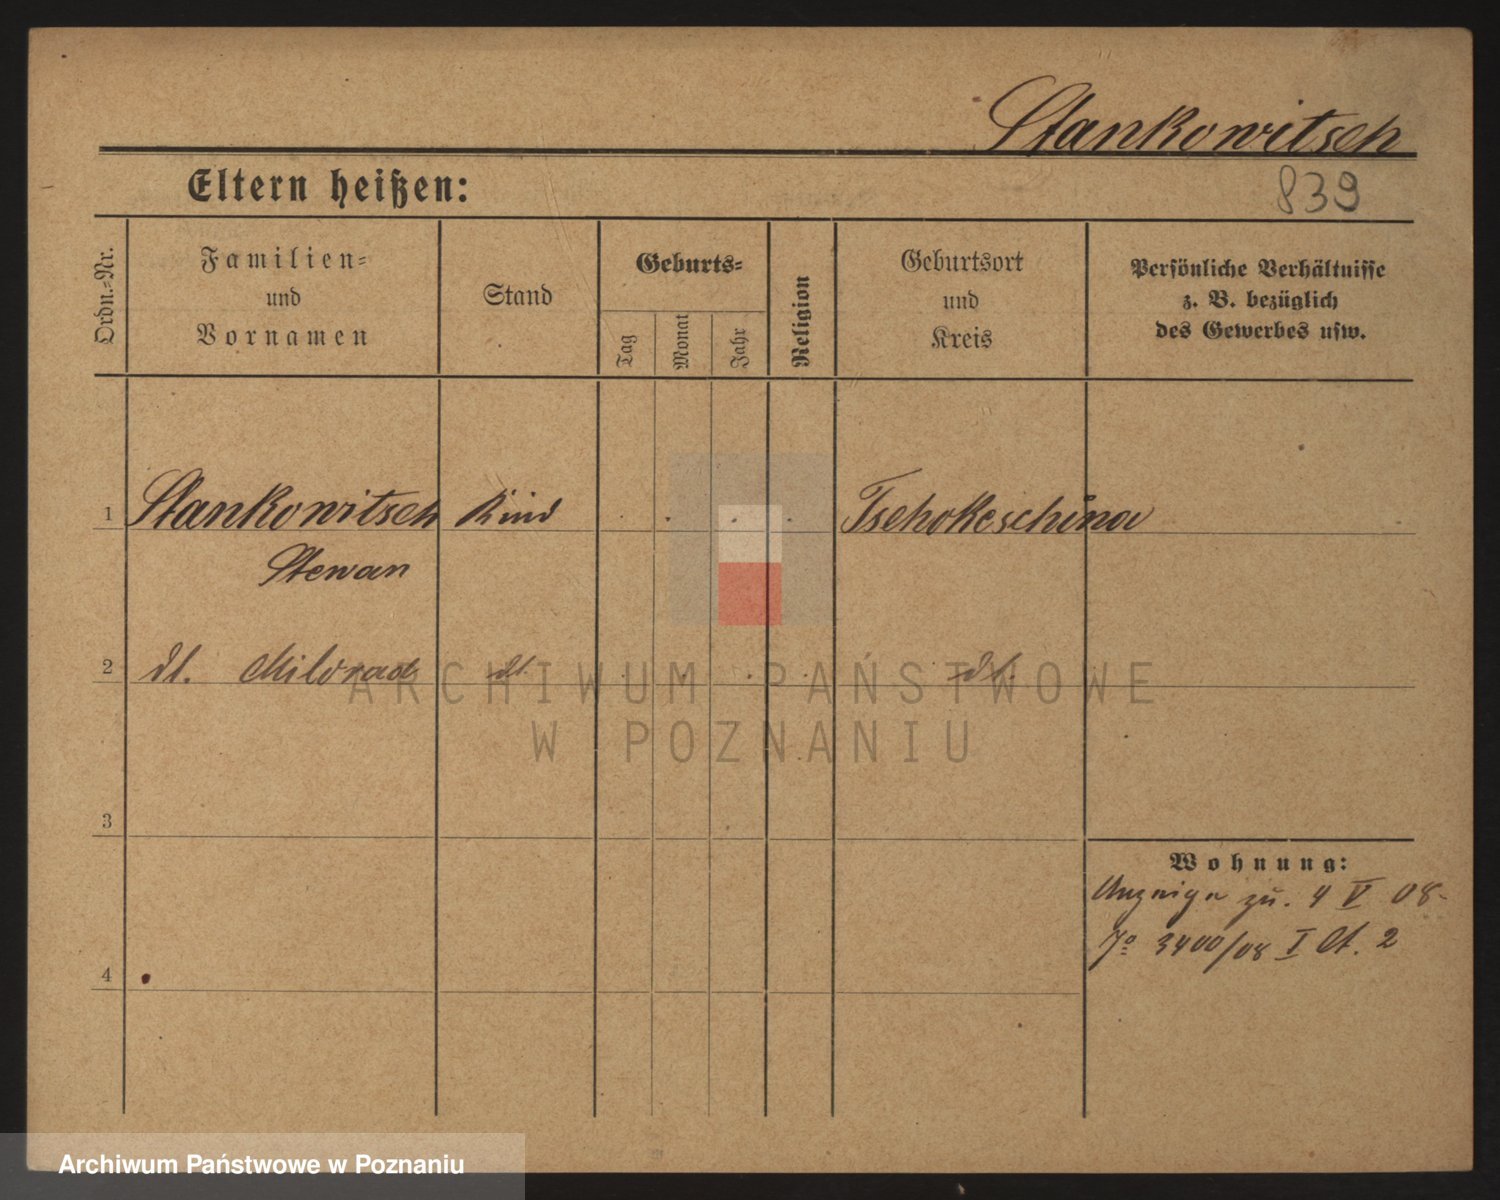 Stankowitsch
Eltern heißen:
839
Ordn.=Nr.
Familien=
und
Vornamen
Stand
Geburts=
Tag
Monat
Jahr
Religion
Geburtsort
und
Kreis
Persönliche Verhältnisse
z. B. bezüglich
des Gewerbes usw.
1 Stankowitsch Kind Tschokeschina
Stewan
2 dt. Milorad dt. dt.
3
4
Wohnung:
Anzeige zu. 4 V 08.
Jo 3400/08 I Ct. 2
ARCHIWUM PAŃSTWOWE
W POZNANIU
Archiwum Państwowe w Poznaniu